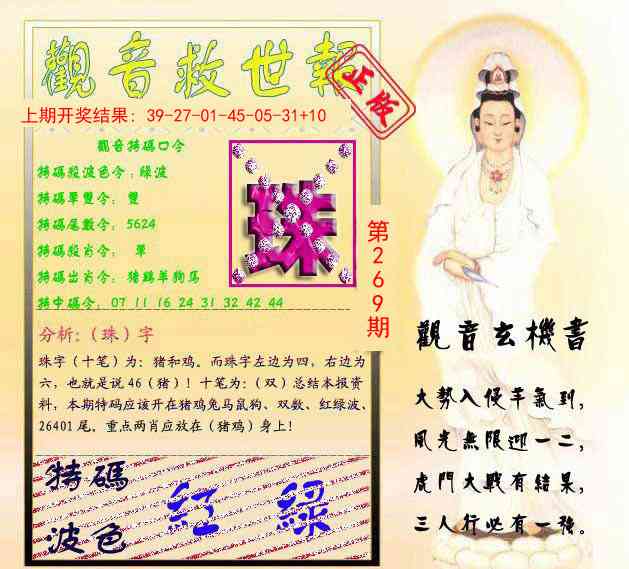 觀音救世報
正版
上期开奖结果：39-27-01-45-05-31+10
觀音特碼口令
特碼段波色令：绿波
特碼單雙令： 雙
特碼尾數令： 5624
特碼段肖令： 單
特碼出肖令： 猪鷄羊狗馬
特中碼令： 07 11 16 24 31 32 42 44
珠
第269期
分析：（珠）字
珠字（十笔）为：猪和鸡。而珠字左边为四，右边为
六，也就是说46（猪）！十笔为：（双）总结本报资
料，本期特码应该开在猪鸡兔马鼠狗、双数、红绿波、
26401尾。重点两肖应放在（猪鸡）身上！
特碼
波色
紅 綠
觀音玄機書
大勢入侵羊氣到，
風光無限迎一二，
虎門大戰有結果，
三人行必有一強。